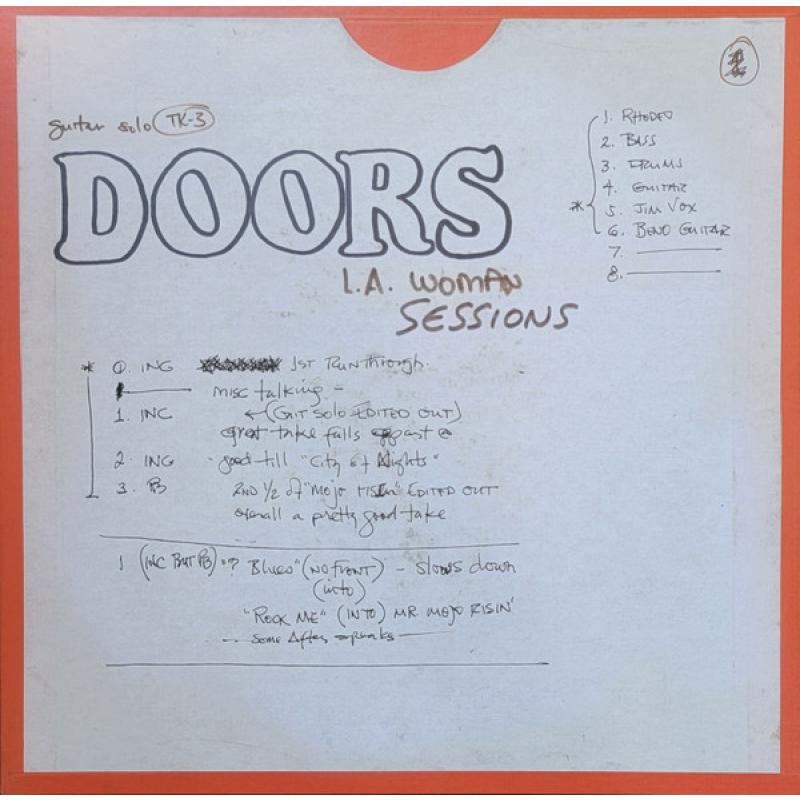 guitar solo TK-3
DOORS
L.A. WOMAN
SESSIONS
1. RHODEO
2. BASS
3. DRUMS
4. GUITAR
* 5. JIM VOX
6. BENO GUITAR
7.
8.
* 0. INC 1ST RUNTHROUGH.
misc talking -
1. INC ←(GIT SOLO EDITED OUT)
great take falls apart @
2. INC - good till "City of Nights"
3. PB 2ND 1/2 of "Mojo RISEN" EDITED OUT
overall a pretty good take
1 (INC BUT PB) "? Blues" (NO FRONT) - slows down
(into)
"ROCK ME" (INTO) MR MOJO RISIN'
-- some After speaks --